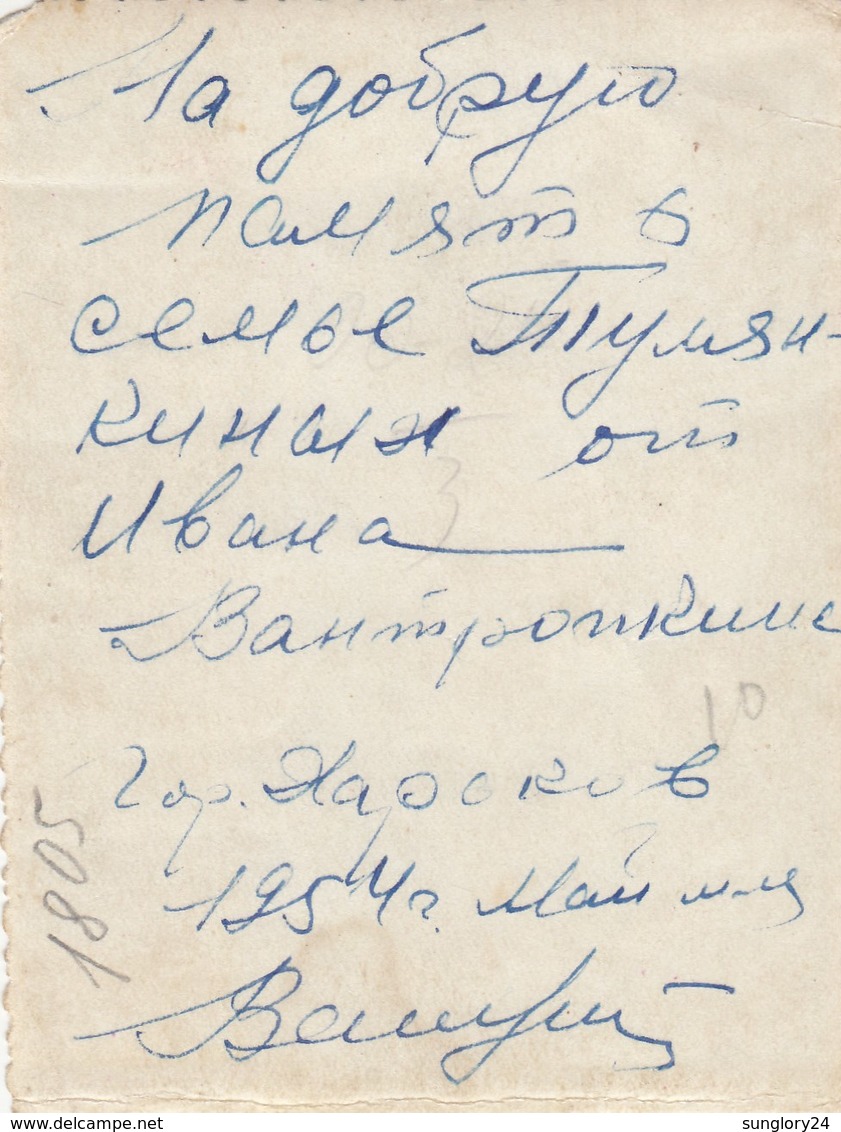 На добрую
памят в
семье Тумян-
киных от
Ивана
Вантропкина
10
гор. Харьков
1954 г. Май м-ц
1805
www.delcampe.net
sunglory24